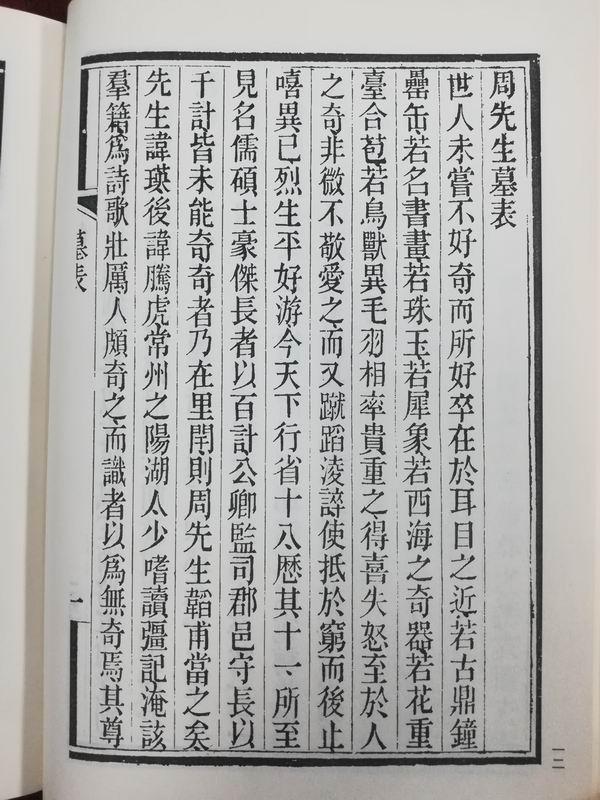 周先生墓表
世人未嘗不好奇而所好卒在於耳目之近若古鼎鐘
罍缶若名書畫若珠玉若犀象若西海之奇器若花重
臺合苞若鳥獸異毛羽相率貴重之得喜失怒至於人
之奇非微不敬愛之而又蹴蹈淩誶使抵於窮而後止
嘻異已烈生平好游今天下行省十八歷其十一所至
見名儒碩士豪傑長者以百計公卿監司郡邑守長以
千計皆未能奇奇者乃在里閈則周先生韜甫當之矣
先生諱瑛後諱騰虎常州之陽湖人少嗜讀彊記淹該
羣籍爲詩歌壯厲人頗奇之而識者以爲無奇焉其尊
墓表
一